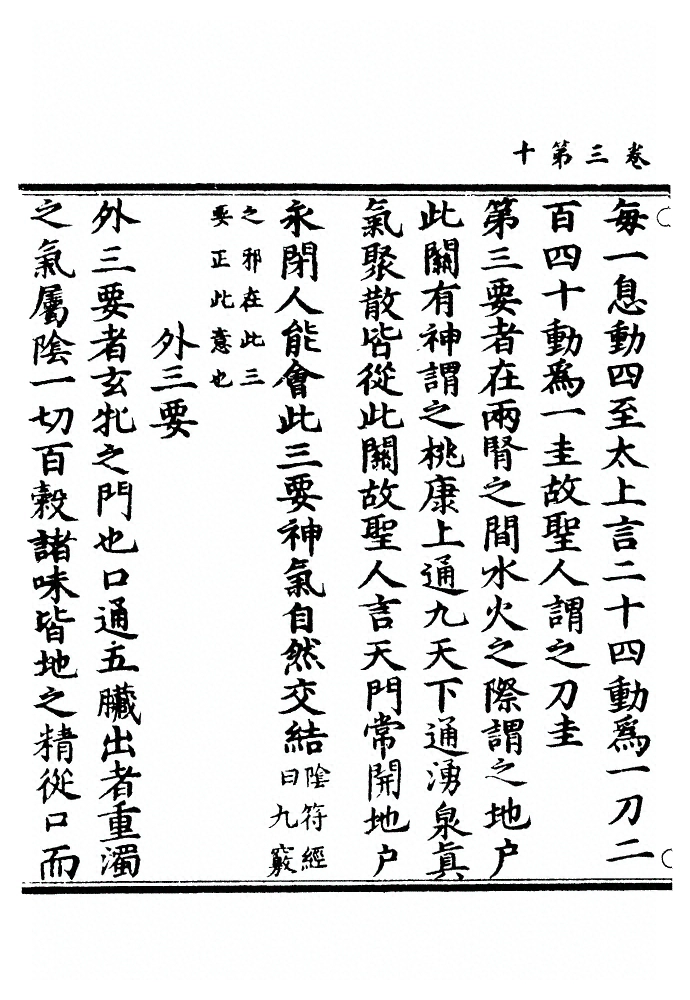 卷三第十
每一息動四至太上言二十四動爲一刀二
百四十動爲一圭故聖人謂之刀圭
第三要者在兩腎之間水火之際謂之地户
此關有神謂之桃康上通九天下通湧泉眞
氣聚散皆從此關故聖人言天門常開地户
永閉人能會此三要神氣自然交結陰符經
曰九竅
之邪在此三
要正此意也
外三要
外三要者玄牝之門也口通五臟出者重濁
之氣屬陰一切百穀諸味皆地之精從口而